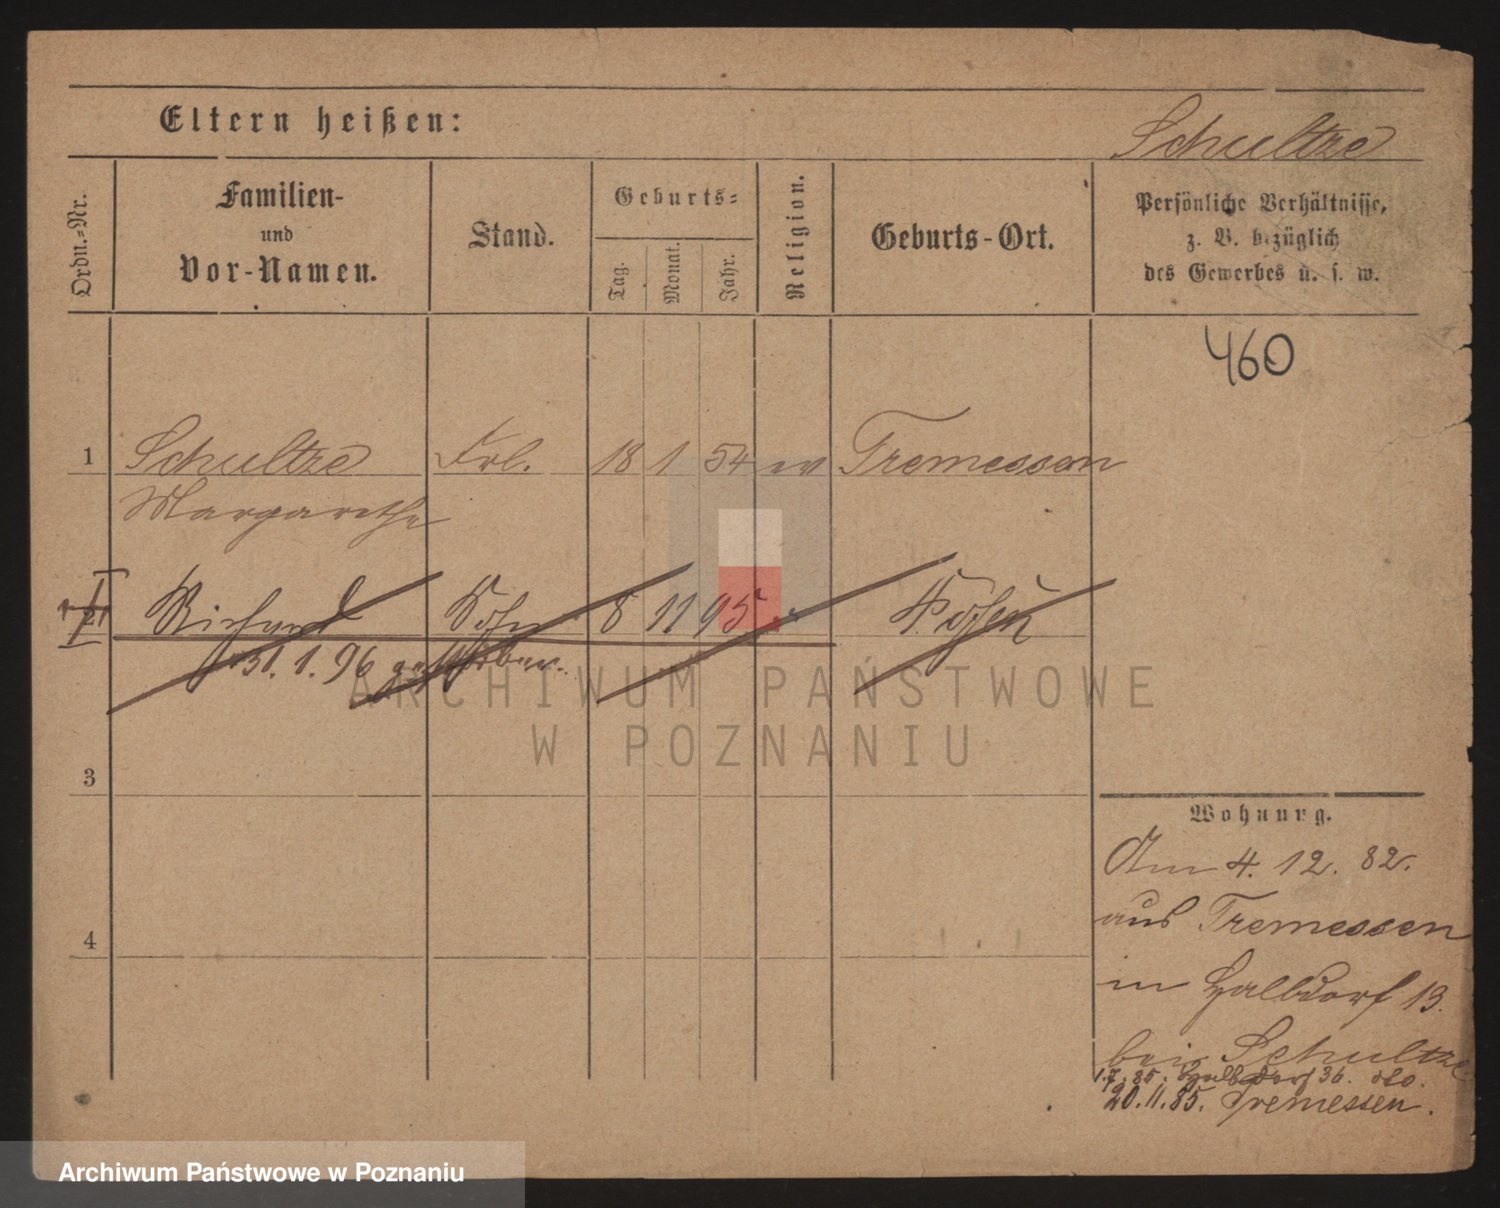 Eltern heißen:
Schultze
Ordn.-Nr.
Familien-
und
Vor-Namen.
Stand.
Geburts-
Tag.
Monat.
Jahr.
Religion.
Geburts-Ort.
Persönliche Verhältnisse,
z. B. bezüglich
des Gewerbes u. s. w.
460
1 Schultze Frl. 18 1 54 ev Tremessen
Margarethe
2 Richard Sohn 8 11 95 " Posen
31. 1. 96 gestorben.
ARCHIWUM PAŃSTWOWE
W POZNANIU
3
4
Wohnung.
Am 4. 12. 82.
aus Tremessen
in Halbdorf 13.
bei Schultze
1.7.85. Halbdorf 36. dto.
20.11.85. Tremessen.
Archiwum Państwowe w Poznaniu